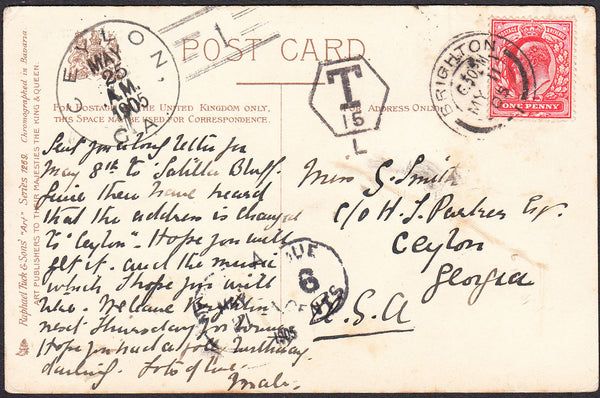 POST CARD
FOR POSTAGE IN THE UNITED KINGDOM ONLY,
THIS SPACE MAY BE USED FOR CORRESPONDENCE.
FOR ADDRESS ONLY.
CEYLON,
MAY
25
A.M.
1905
GA.
1
T
15
L
BRIGHTON
MY 11
05
ONE PENNY
Sent you long letter for
May 8th to Satilla Bluff.
Since then have heard
that the address is changed
to "Ceylon". Hope you will
get it. and the music
which I hope you will
like. We leave Brighton
next Thursday for
Hope you had a jolly birthday
darling. Lots of love.
Miss G. Smith
c/o H. S. Parker Esq.
Ceylon
Georgia
U.S.A
DUE
6
CENTS
1905
Raphael Tuck & Sons' "Art" Series 1269. Chromographed in Bavaria
ART PUBLISHERS TO THEIR MAJESTIES THE KING & QUEEN.